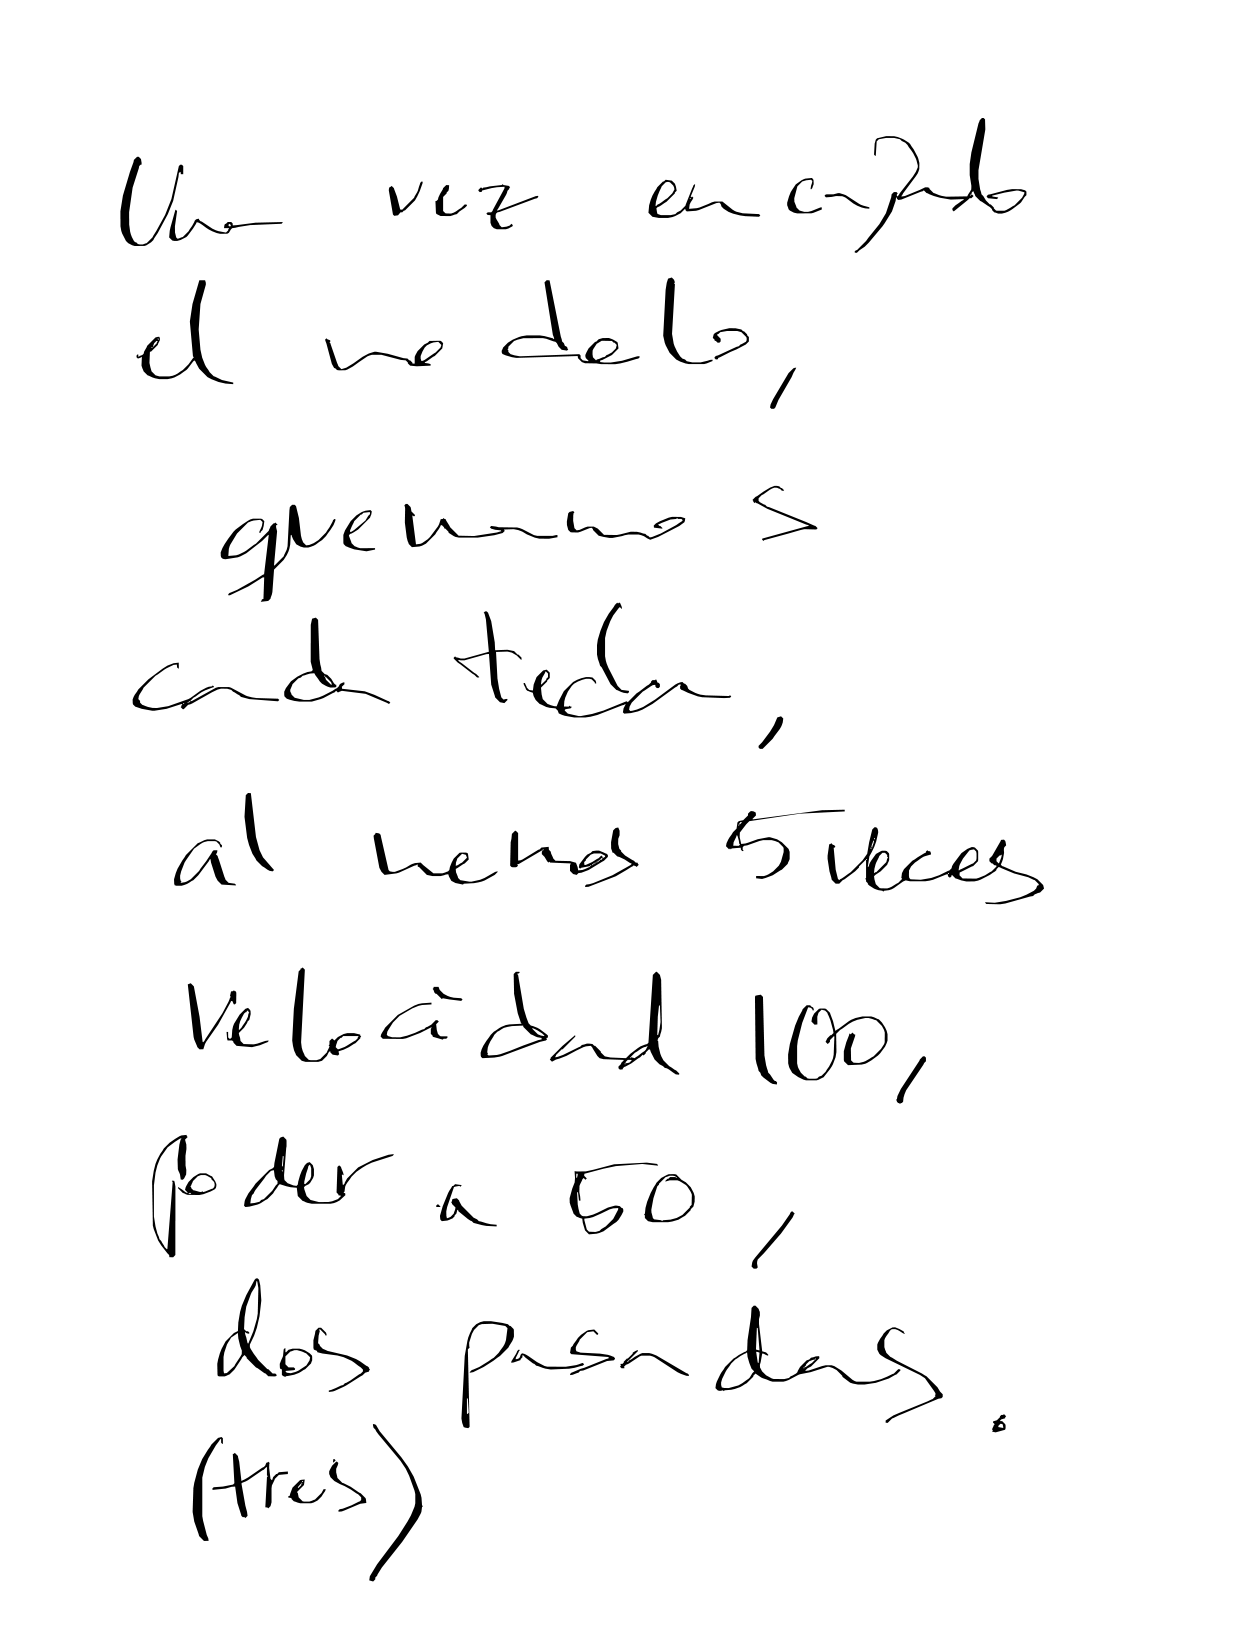 Una vez encajado
el modelo,
quemamos
cada tecla,
al menos 5 veces
velocidad 100,
poder a 50,
dos pasadas.
(tres)